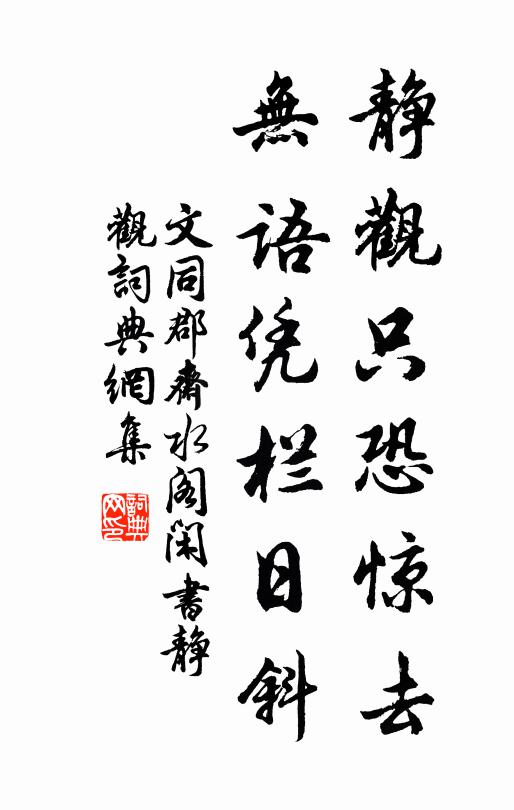 静觀只恐惊去
無語凭栏日斜
文同郡齋水阁闲書静
觀詞典網集
詞典网印